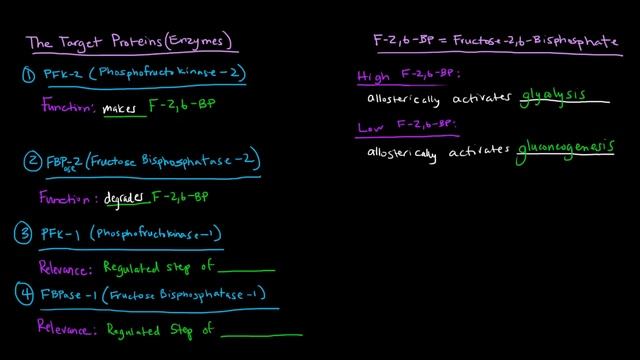 The Target Proteins (Enzymes)
① PFK-2 (Phosphofructokinase-2)
Function: makes F-2,6-BP
② FBP-2 (Fructose Bisphosphatase-2)
ase
Function: degrades F-2,6-BP
③ PFK-1 (Phosphofructokinase-1)
Relevance: Regulated step of ________
④ FBPase-1 (Fructose Bisphosphatase-1)
Relevance: Regulated Step of ________
F-2,6-BP = Fructose-2,6-Bisphosphate
High F-2,6-BP:
allosterically activates glycolysis
Low F-2,6-BP:
allosterically activates gluconeogenesis